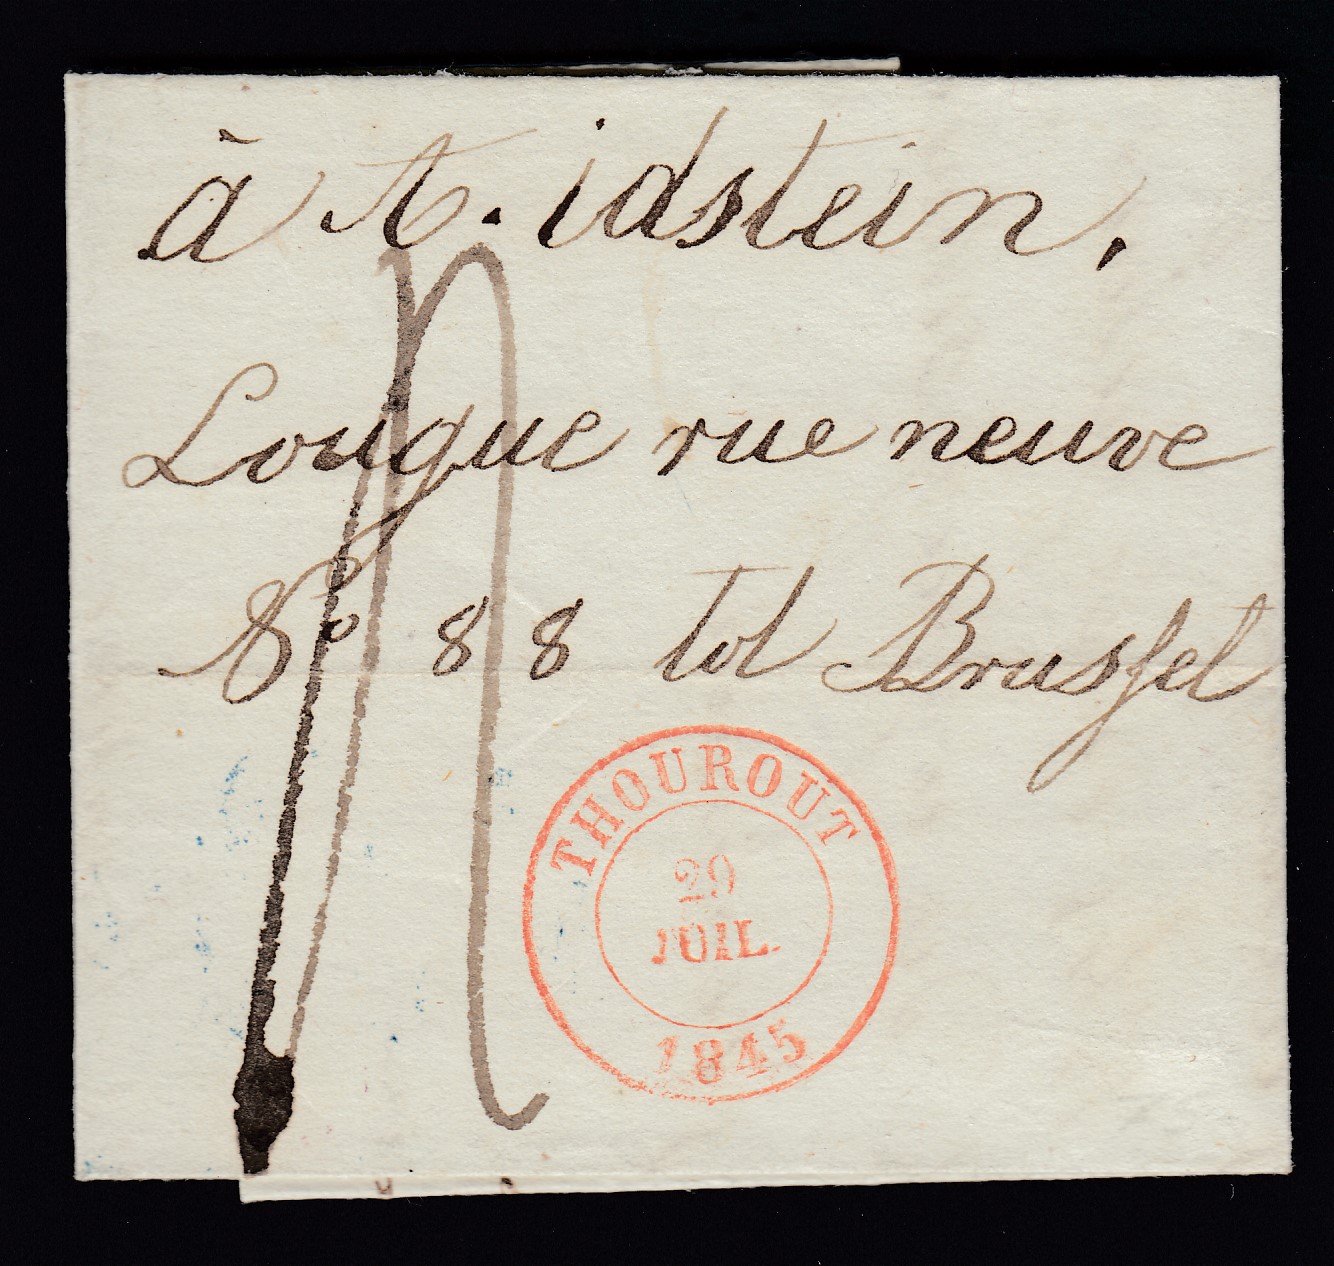 à A. idstein.
Longue rue neuve
No 88 tot Brussel
THOUROUT
29
JUIL.
1845